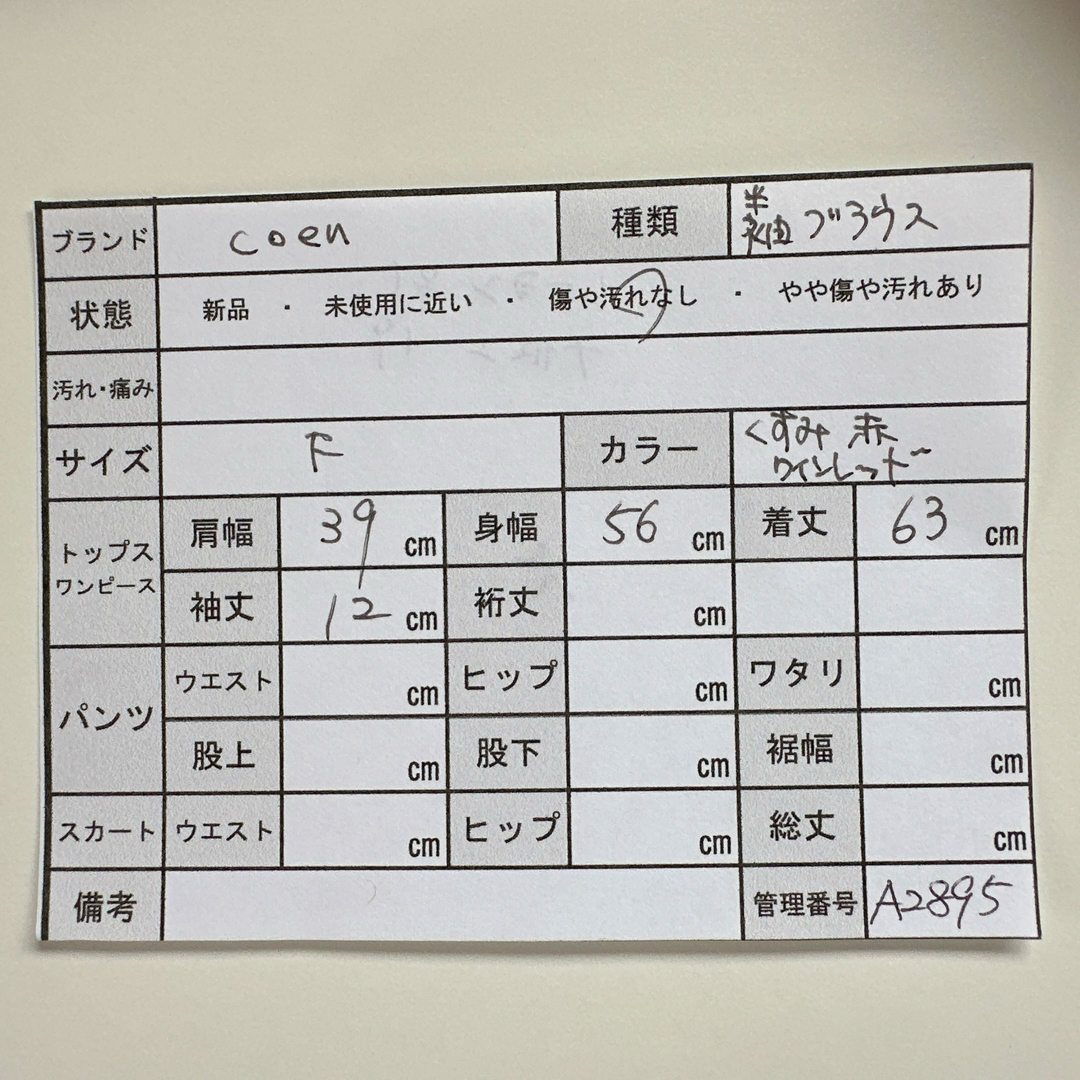 ブランド coen 種類 半袖ブラウス
状態 新品 ・ 未使用に近い ・ 傷や汚れなし ・ やや傷や汚れあり
汚れ・痛み
サイズ F カラー くすみ赤
ワインレッド
トップス
ワンピース
肩幅 39 cm 身幅 56 cm 着丈 63 cm
袖丈 12 cm 裄丈 cm
パンツ
ウエスト cm ヒップ cm ワタリ cm
股上 cm 股下 cm 裾幅 cm
スカート ウエスト cm ヒップ cm 総丈 cm
備考 管理番号 A2895